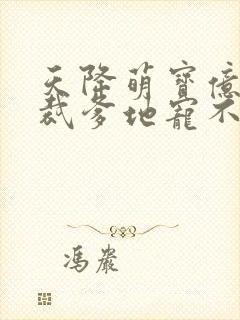 天降萌寶億
裁爹地寵不
馮嚴